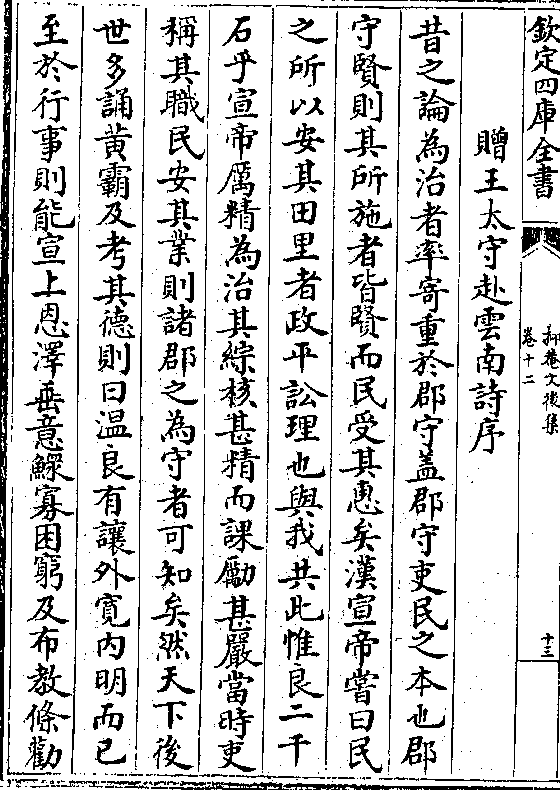 欽定四庫全書
抑菴文後集
卷十二
十三
贈王太守赴雲南詩序
昔之論為治者率寄重於郡守盖郡守吏民之本也郡
守賢則其所施者皆賢而民受其惠矣漢宣帝嘗曰民
之所以安其田里者政平訟理也與我共此惟良二千
石乎宣帝厲精為治其綜核甚精而課勵甚嚴當時吏
稱其職民安其業則諸郡之為守者可知矣然天下後
世多誦黄霸及考其德則曰温良有讓外寛内明而已
至於行事則能宣上恩澤垂意鰥寡困窮及布教條勸